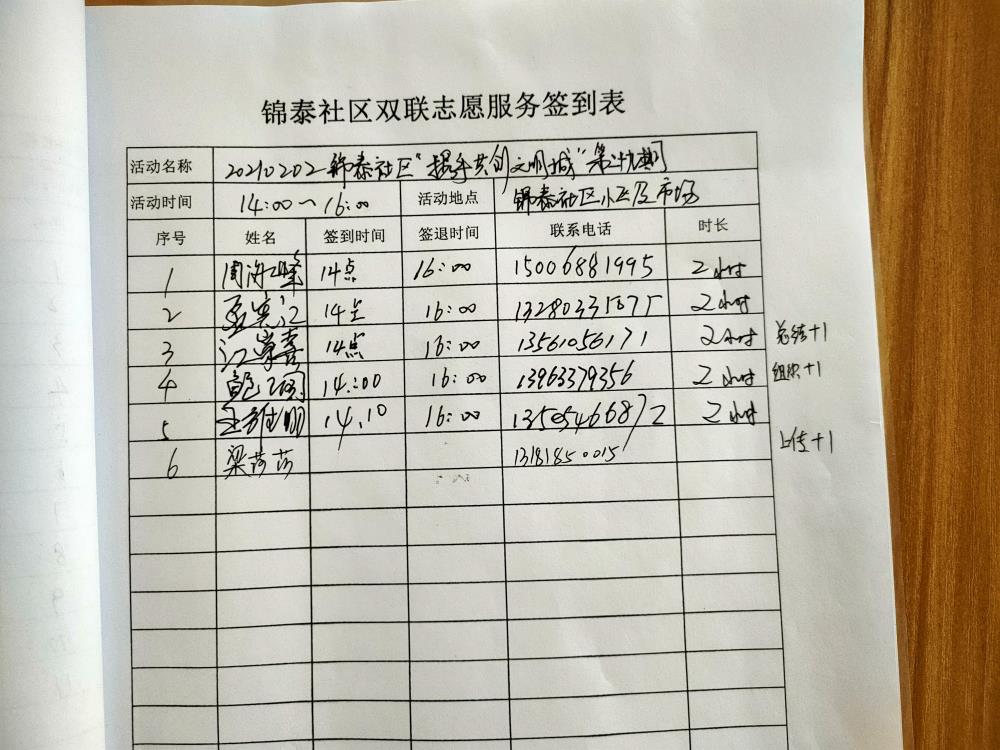 锦泰社区双联志愿服务签到表
活动名称 20210202 锦泰社区"携手共创文明城"第十九期
活动时间 14:00～16:00 活动地点 锦泰社区小区及市场
序号 姓名 签到时间 签退时间 联系电话 时长
1 周海峰 14点 16:00 15006881995 2小时
2 14点 16:00 2小时
3 江崇喜 14点 16:00 13561056171 2小时 总结+1
4 14:00 16:00 13963379356 2小时 组织+1
5 14.10 16:00 13505466872 2小时
上传+1
6 梁莎莎 13181850015